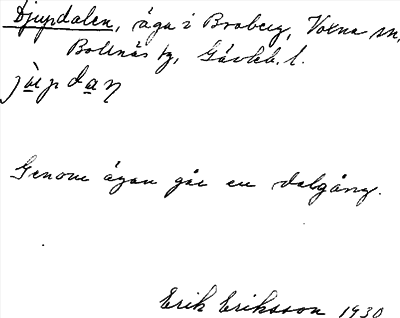 Djupdalen, äga i Broberg, Voxna sn,
Bollnäs tg, Gävleb. l.
jùpdaṇ
Genom ägan går en dalgång.
Erik Eriksson 1930